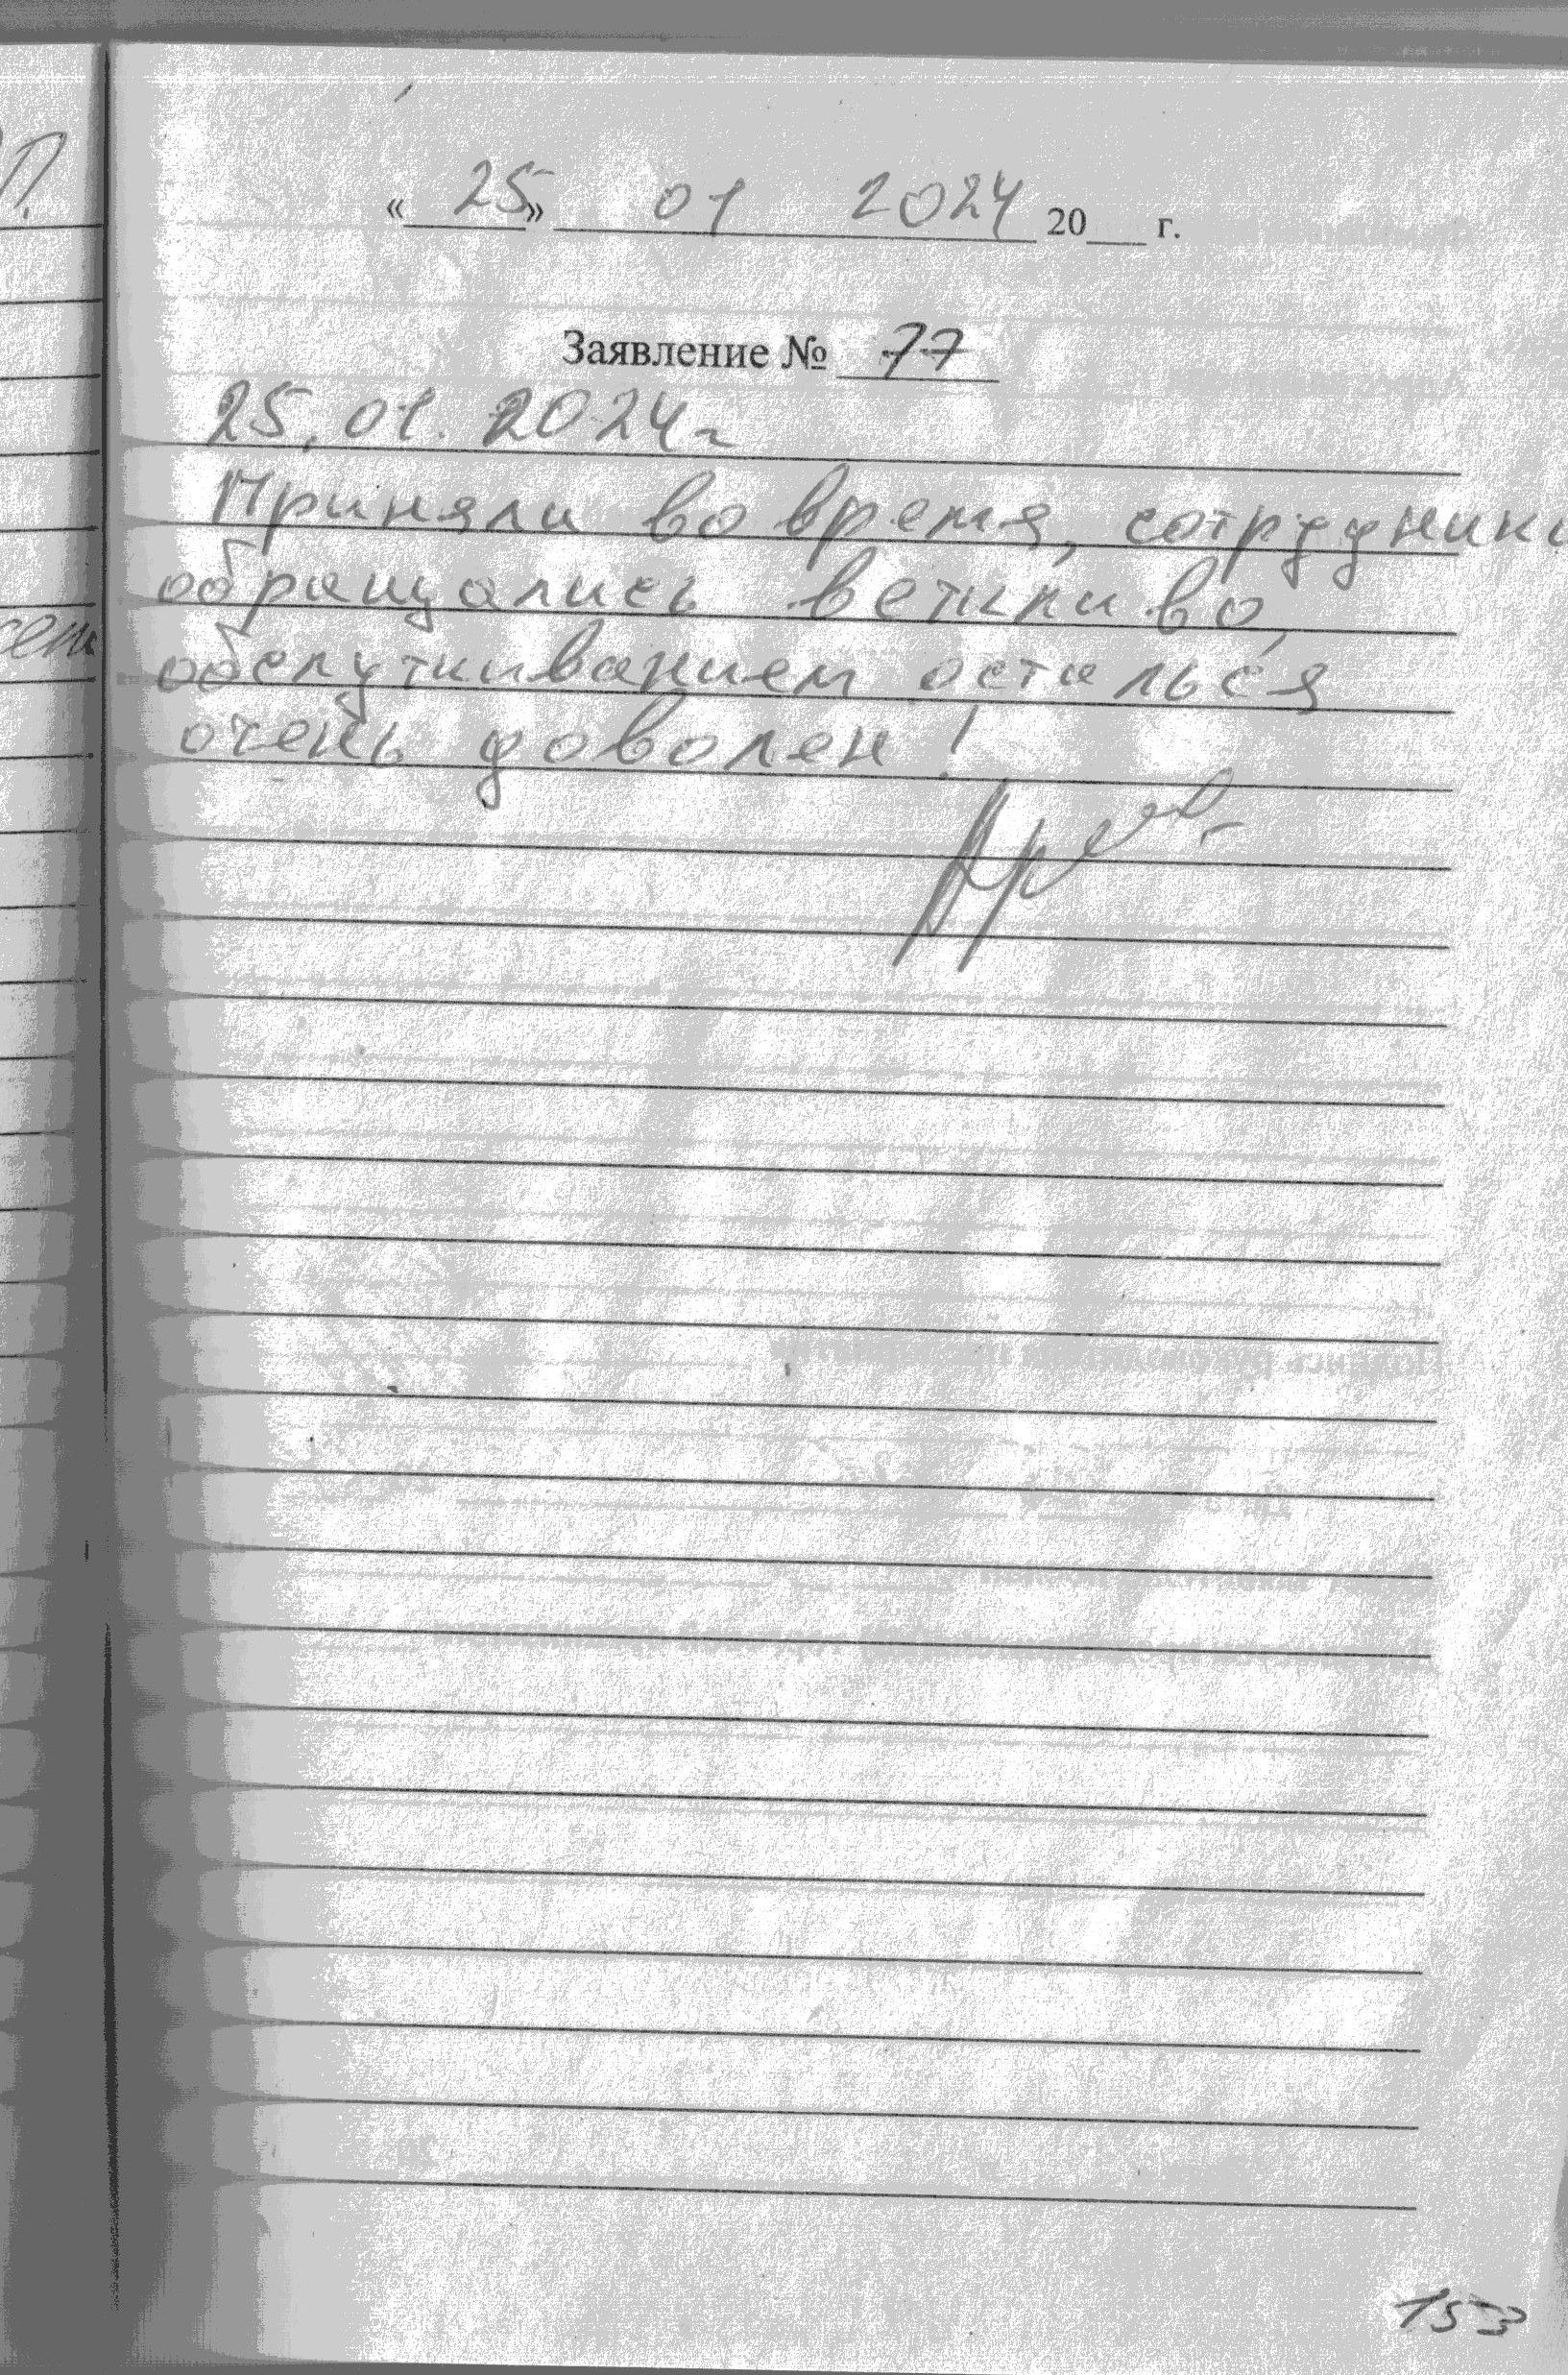 « 25 » 01 2024 20___ г.
Заявление № 77
25.01.2024 г
Приняли во время, сотрудники
обращались ветливо,
обслуживанием остался
очень доволен!
153